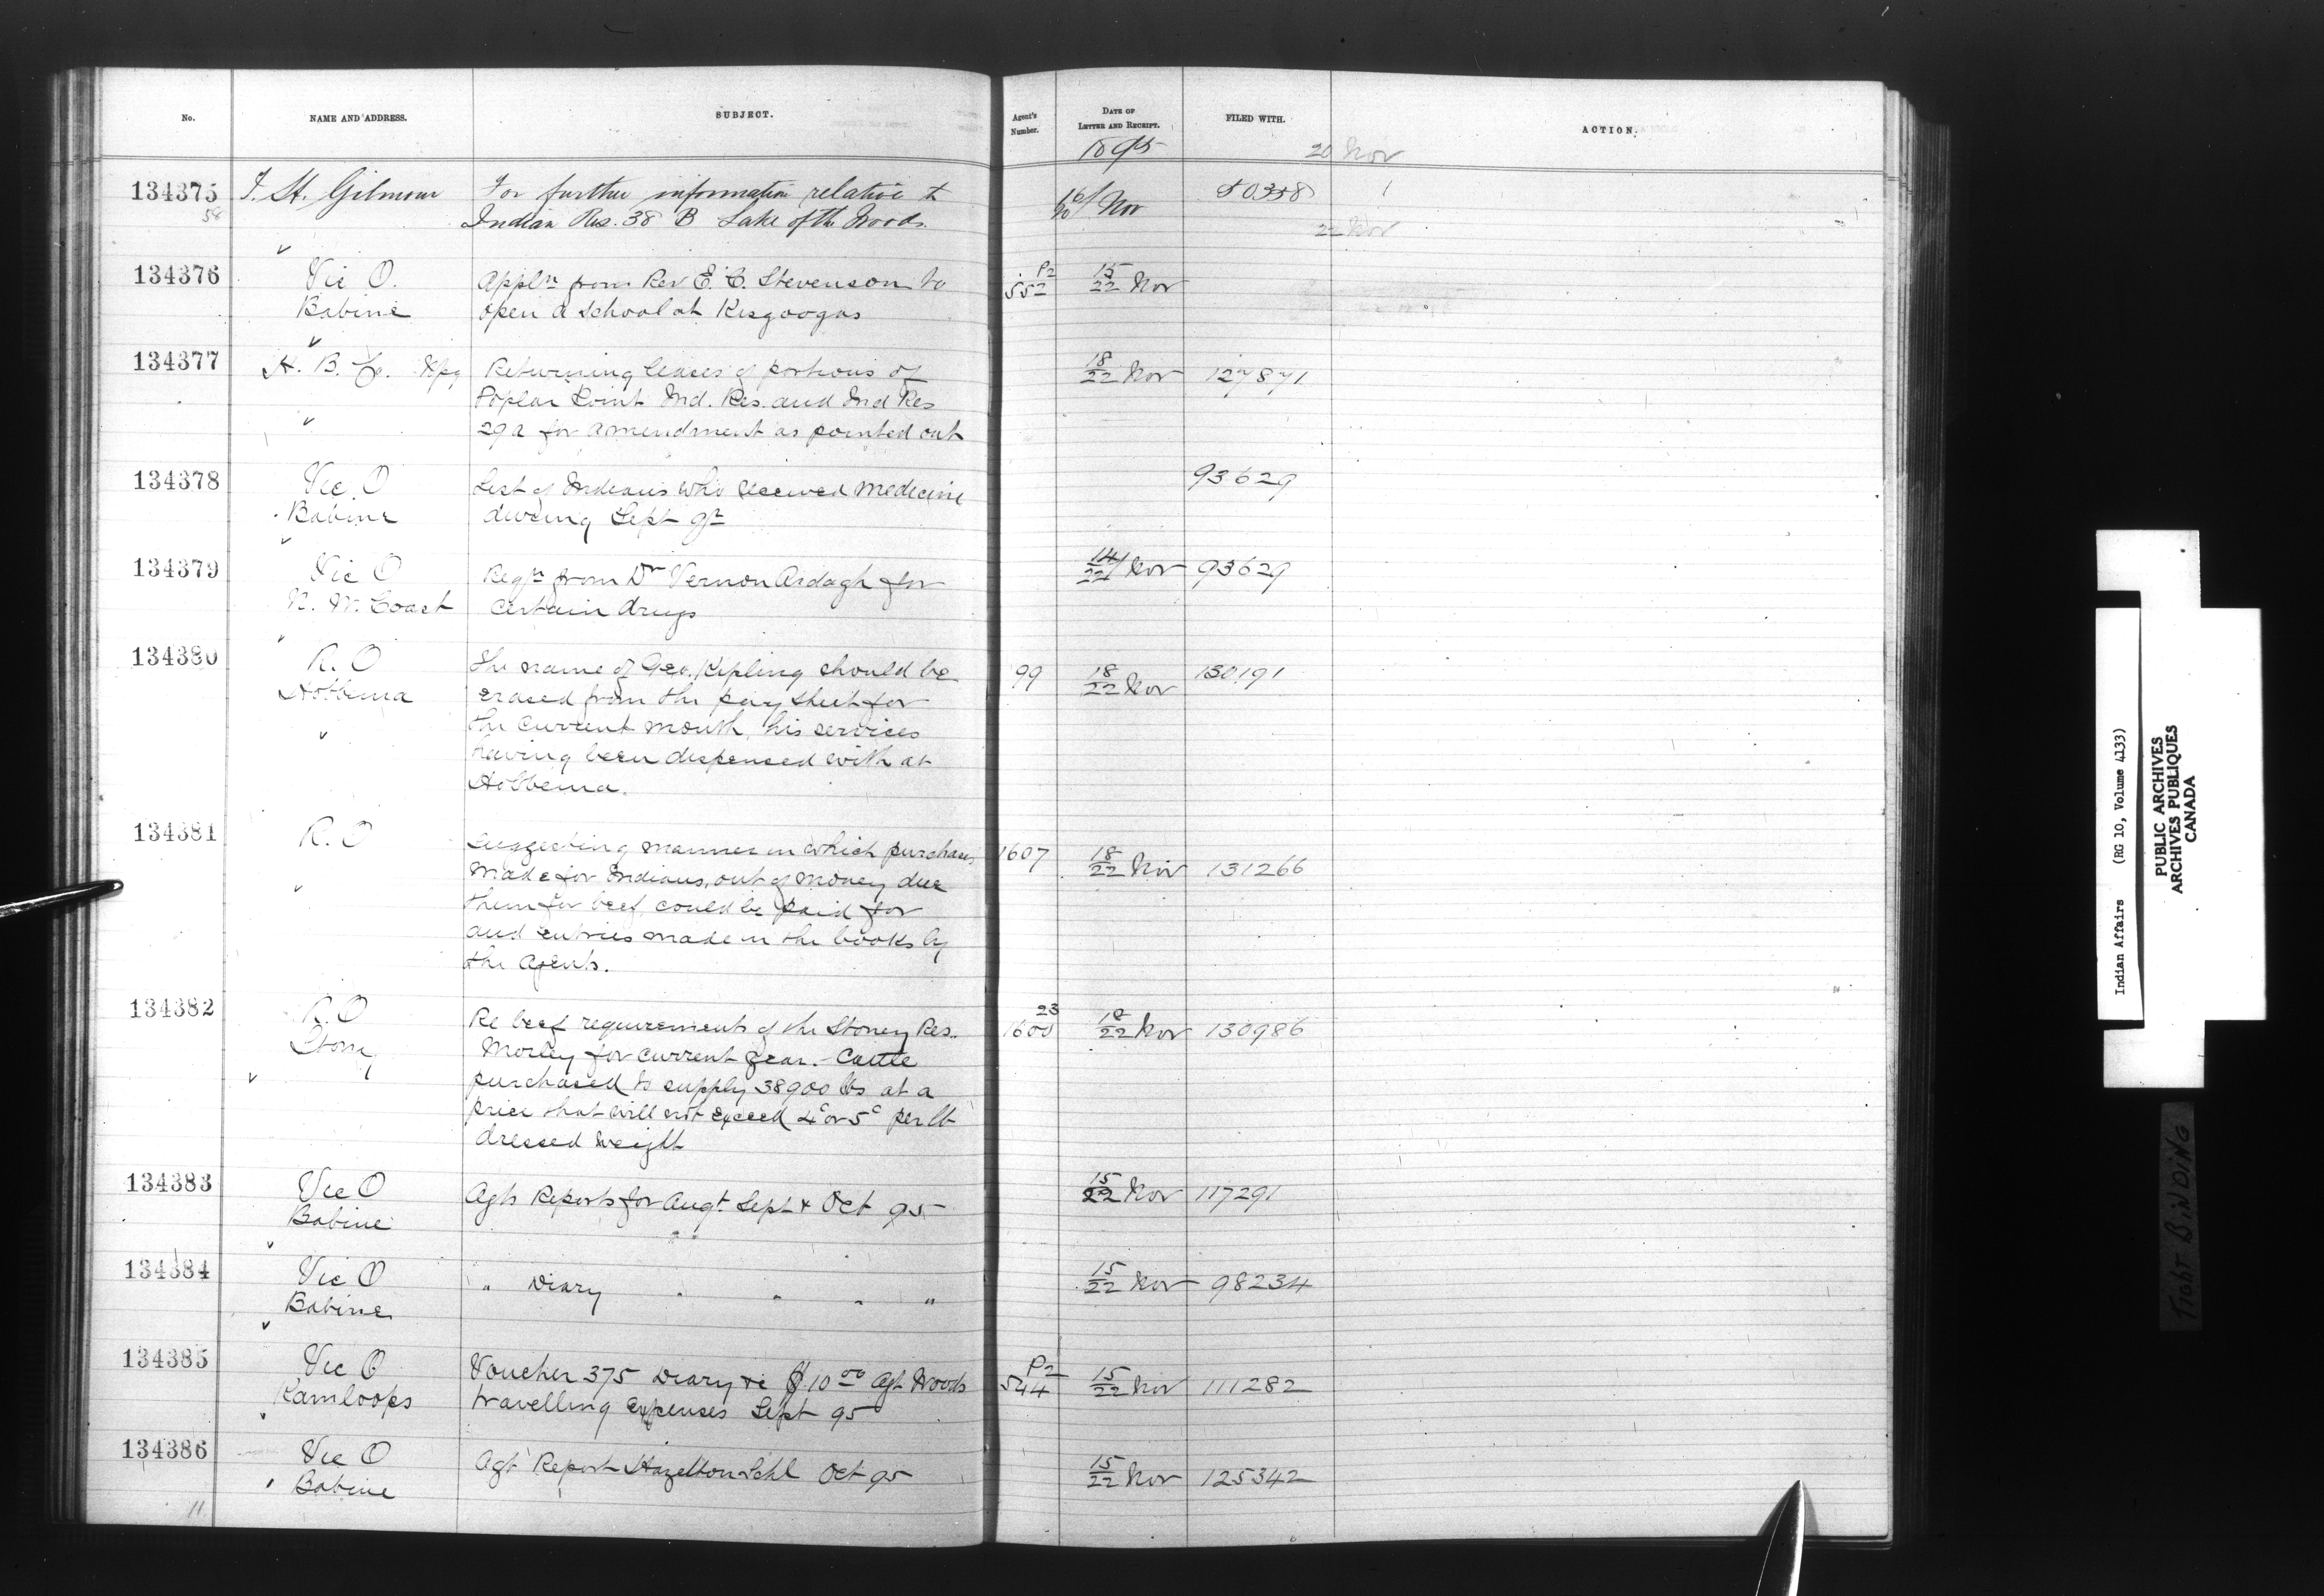 No. NAME AND ADDRESS. SUBJECT. Agent's Number. DATE OF LETTER AND RECEIPT. FILED WITH. ACTION.
1895 20 Nov
134375 J. H. Gilmour For further information relative to 16/20 Nov 50358 1
58 Indian Res. 38 B Lake of the Woods. 22 Nov
134376 Vic O. Appln from Rev E. C. Stevenson to P2 552 15/22 Nov
Babine open a school at Kisgoogas
134377 H. B. Co. Wpg Returning leases of portions of 18/22 Nov 127871
Poplar Point Ind. Res. and Ind Res
29a for amendment as pointed out
134378 Vic. O List of Indians who received medicine 93629
Babine during Sept qr
134379 Vic O Reqn from Dr Vernon Ardagh for 14/22 Nov 93629
N. W. Coast certain drugs
134380 R. O The name of Geo. Kipling should be 99 18/22 Nov 130191
Hobbema erased from the pay sheet for
the current month, his services
having been dispensed with at
Hobbema.
134381 R. O Suggesting manner in which purchases 1607 18/22 Nov 131266
made for Indians, out of money due
them for beef, could be paid for
and entries made in the books by
the Agents.
134382 R. O Re beef requirements of the Stoney Res. 23 1600 18/22 Nov 130986
Stony Morley for current year. - Cattle
purchased to supply 38900 lbs at a
price that will not exceed 4c or 5c per lb
dressed weight
134383 Vic O Agts Reports for Augt. Sept & Oct 95 15/22 Nov 117291
Babine
134384 Vic O " Diary " " " " 15/22 Nov 98234
Babine
134385 Vic O Voucher 375 Diary &c $10.00 Agt Woods P2 544 15/22 Nov 111282
Kamloops travelling expenses Sept 95
134386 Vic O Agt Report Hazelton Schl Oct 95 15/22 Nov 125342
Babine
11
Indian Affairs (RG 10, Volume 4133)
PUBLIC ARCHIVES
ARCHIVES PUBLIQUES
CANADA
TIGHT BINDING